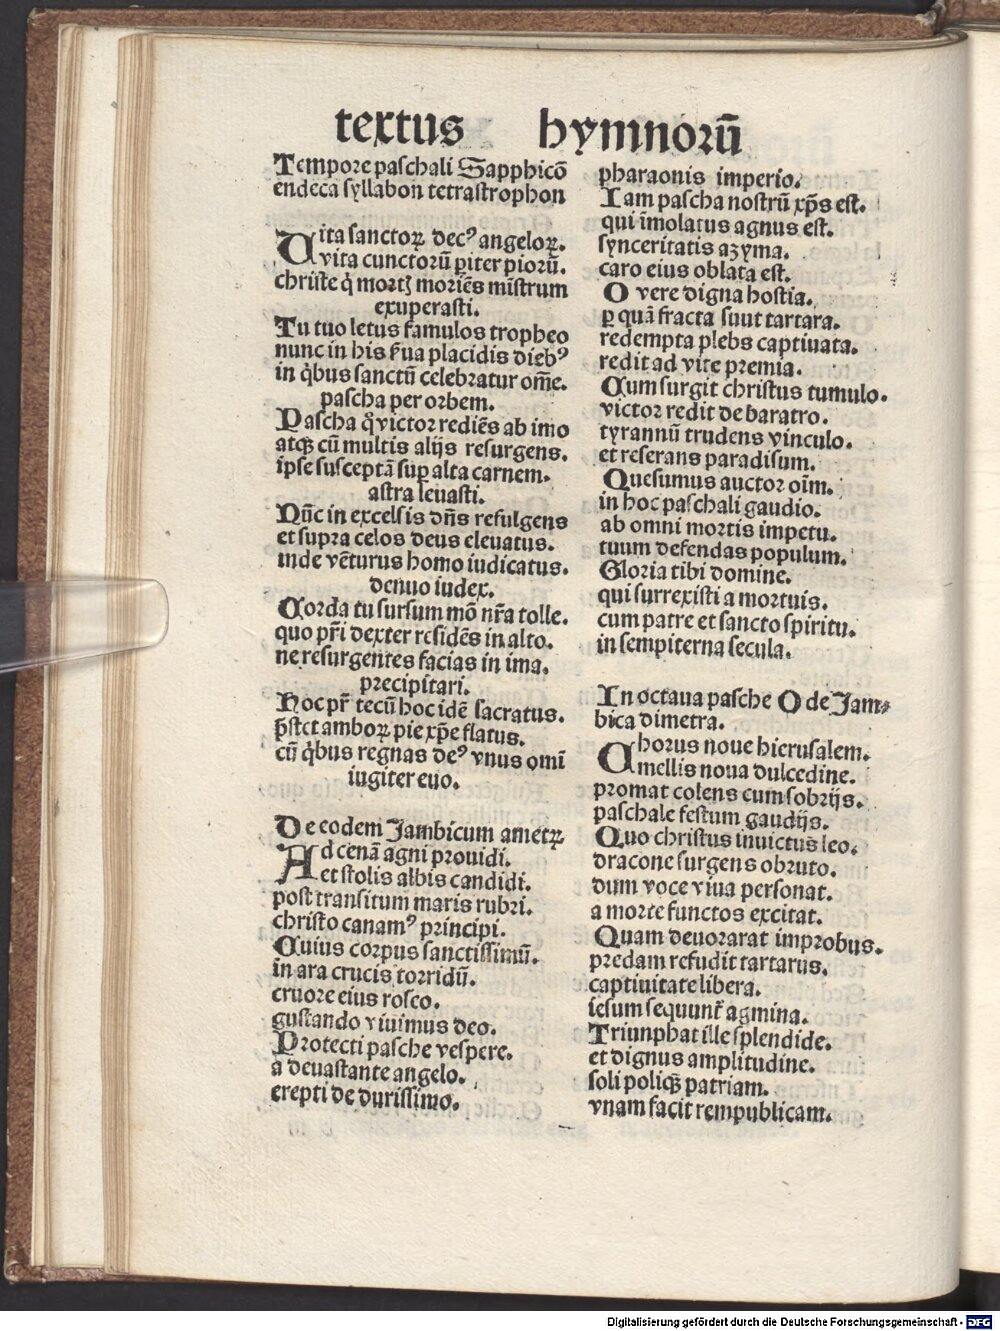 textus hymnorū
Tempore paschali Sapphicō
endeca syllabon tetrastrophon
Uita sanctoꝝ decꝰ angeloꝝ.
vita cunctorū ꝑiter piorū.
christe q̇ mortꝭ moriēs mīstrum
exuperasti.
Tu tuo letus famulos tropheo
nunc in his ẜua placidis diebꝰ
in q̇bus sanctū celebratur om̄e.
pascha per orbem.
Pascha q̇ victor rediēs ab imo
atqꝫ cū multis alijs resurgens.
ipse susceptā sup alta carnem.
astra leuasti.
Nūc in excelsis dn̄s refulgens
et supra celos deus eleuatus.
inde vēturus homo iudicatus.
denuo iudex.
Corda tu sursum mō nr̄a tolle.
quo pr̄i dexter residēs in alto.
ne resurgentes facias in ima.
precipitari.
Hoc pr̄ tecū hoc idē sacratus.
p̄stet amboꝝ pie xp̄e flatus.
cū q̇bus regnas deꝰ vnus omī
iugiter euo.
De eodem Jambicum ametꝝ
Ad cenā agni prouidi.
et stolis albis candidi.
post transitum maris rubri.
christo canamꝰ principi.
Cuius corpus sanctissimū.
in ara crucis torridū.
cruore eius roseo.
gustando viuimus deo.
Protecti pasche vespere.
a deuastante angelo.
erepti de durissimo.
pharaonis imperio.
Iam pascha nostrū xp̄s est.
qui īmolatus agnus est.
synceritatis azyma.
caro eius oblata est.
O vere digna hostia.
ꝑ quā fracta sunt tartara.
redempta plebs captiuata.
redit ad vite premia.
Cum surgit christus tumulo.
victor redit de baratro.
tyrannū trudens vinculo.
et reserans paradisum.
Quesumus auctor oīm.
in hoc paschali gaudio.
ab omni mortis impetu.
tuum defendas populum.
Gloria tibi domine.
qui surrexisti a mortuis.
cum patre et sancto spiritu.
in sempiterna secula.
In octaua pasche Ode Jam⸗
bica dimetra.
Chorus noue hierusalem.
mellis noua dulcedine.
promat colens cum sobrijs.
paschale festum gaudijs.
Quo christus inuictus leo.
dracone surgens obruto.
dum voce viua personat.
a morte functos excitat.
Quam deuorarat improbus.
predam refudit tartarus.
captiuitate libera.
iesum sequunt̄ agmina.
Triunphat ille splendide.
et dignus amplitudine.
soli poliqꝫ patriam.
vnam facit rempublicam.
Digitalisierung gefördert durch die Deutsche Forschungsgemeinschaft - DFG